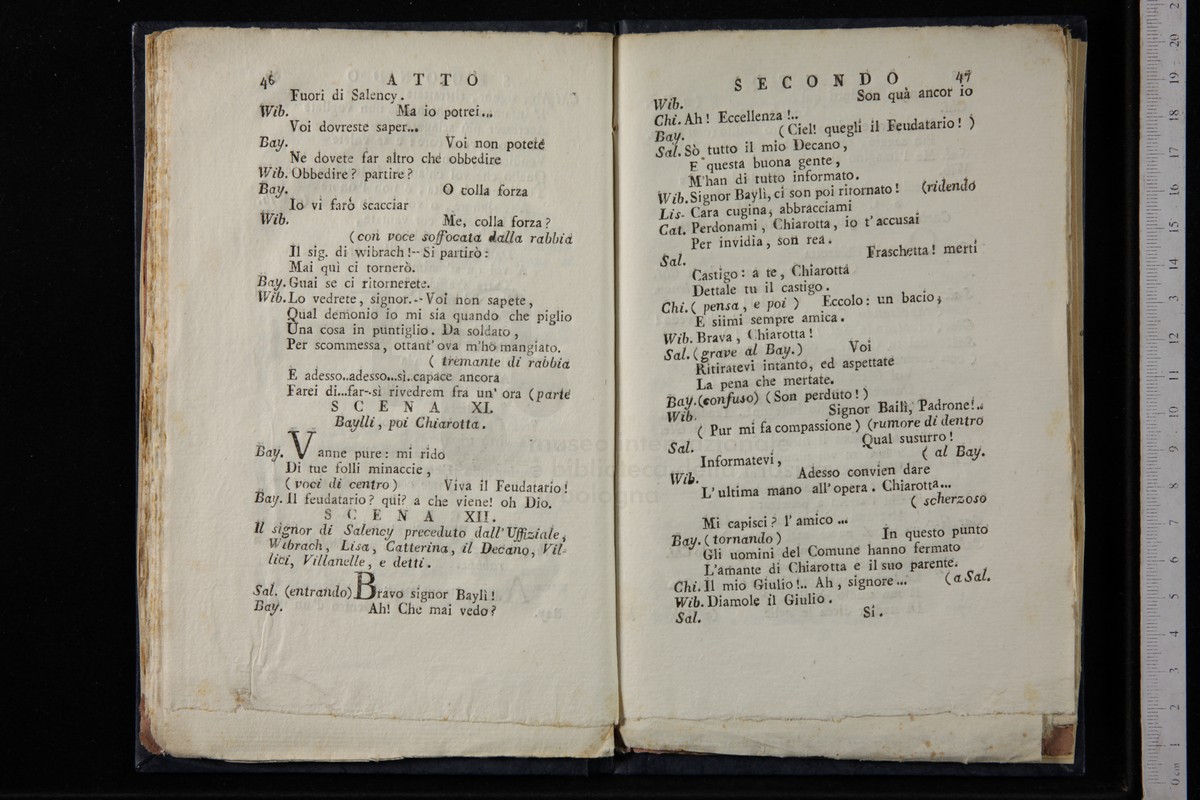 46 ATTO
Fuori di Salency.
Wib. Ma io potrei...
Voi dovreste saper...
Bay. Voi non poteté
Ne dovete far altro che obbedire
Wib. Obbedire? partire?
Bay. O colla forza
Io vi farò scacciar
Wib. Me, colla forza?
(con voce soffocata dalla rabbia
Il sig. di wibrach!-- Si partirò:
Mai quì ci tornerò.
Bay. Guai se ci ritornerete.
Wib. Lo vedrete, signor.-- Voi non sapete,
Qual demonio io mi sia quando che piglio
Una cosa in puntiglio. Da soldato,
Per scommessa, ottant' ova m'hò mangiato.
( tremante di rabbia
E adesso..adesso...sì..capace ancora
Farei di...far--sì rivedrem fra un' ora (parte
SCENA XI.
Baylli, poi Chiarotta.
Bay. Vanne pure: mi rido
Di tue folli minaccie,
(voci di centro) Viva il Feudatario!
Bay. Il feudatario? qui? a che viene! oh Dio.
SCENA XII.
Il signor di Salency preceduto dall' Uffiziale,
Wibrach, Lisa, Catterina, il Decano, Vil-
lici, Villanelle, e detti.
Sal. (entrando) Bravo signor Baylì!
Bay. Ah! Che mai vedo?
SECONDO 47
Wib. Son quà ancor io
Chi. Ah! Eccellenza!..
Bay. (Ciel! quegli il Feudatario!)
Sal. Sò tutto il mio Decano,
E questa buona gente,
M'han di tutto informato.
Wib. Signor Baylì, ci son poi ritornato! (ridendo
Lis- Cara cugina, abbracciami
Cat. Perdonami, Chiarotta, io t'accusai
Per invidia, son rea.
Sal. Fraschetta! merti
Castigo: a te, Chiarotta
Dettale tu il castigo.
Chi. (pensa, e poi) Eccolo: un bacio,
E siimi sempre amica.
Wib. Brava, Chiarotta!
Sal. (grave al Bay.) Voi
Ritiratevi intanto, ed aspettate
La pena che mertate.
Bay. (confuso) (Son perduto!)
Wib. Signor Bailì, Padrone!..
( Pur mi fa compassione) (rumore di dentro
Sal. Qual susurro!
Informatevi, ( al Bay.
Wib. Adesso convien dare
L'ultima mano all'opera. Chiarotta...
( scherzoso
Mi capisci? l'amico...
Bay. (tornando) In questo punto
Gli uomini del Comune hanno fermato
L'amante di Chiarotta e il suo parente.
Chi. Il mio Giulio!.. Ah, signore... (a Sal.
Wib. Diamole il Giulio.
Sal. Si.